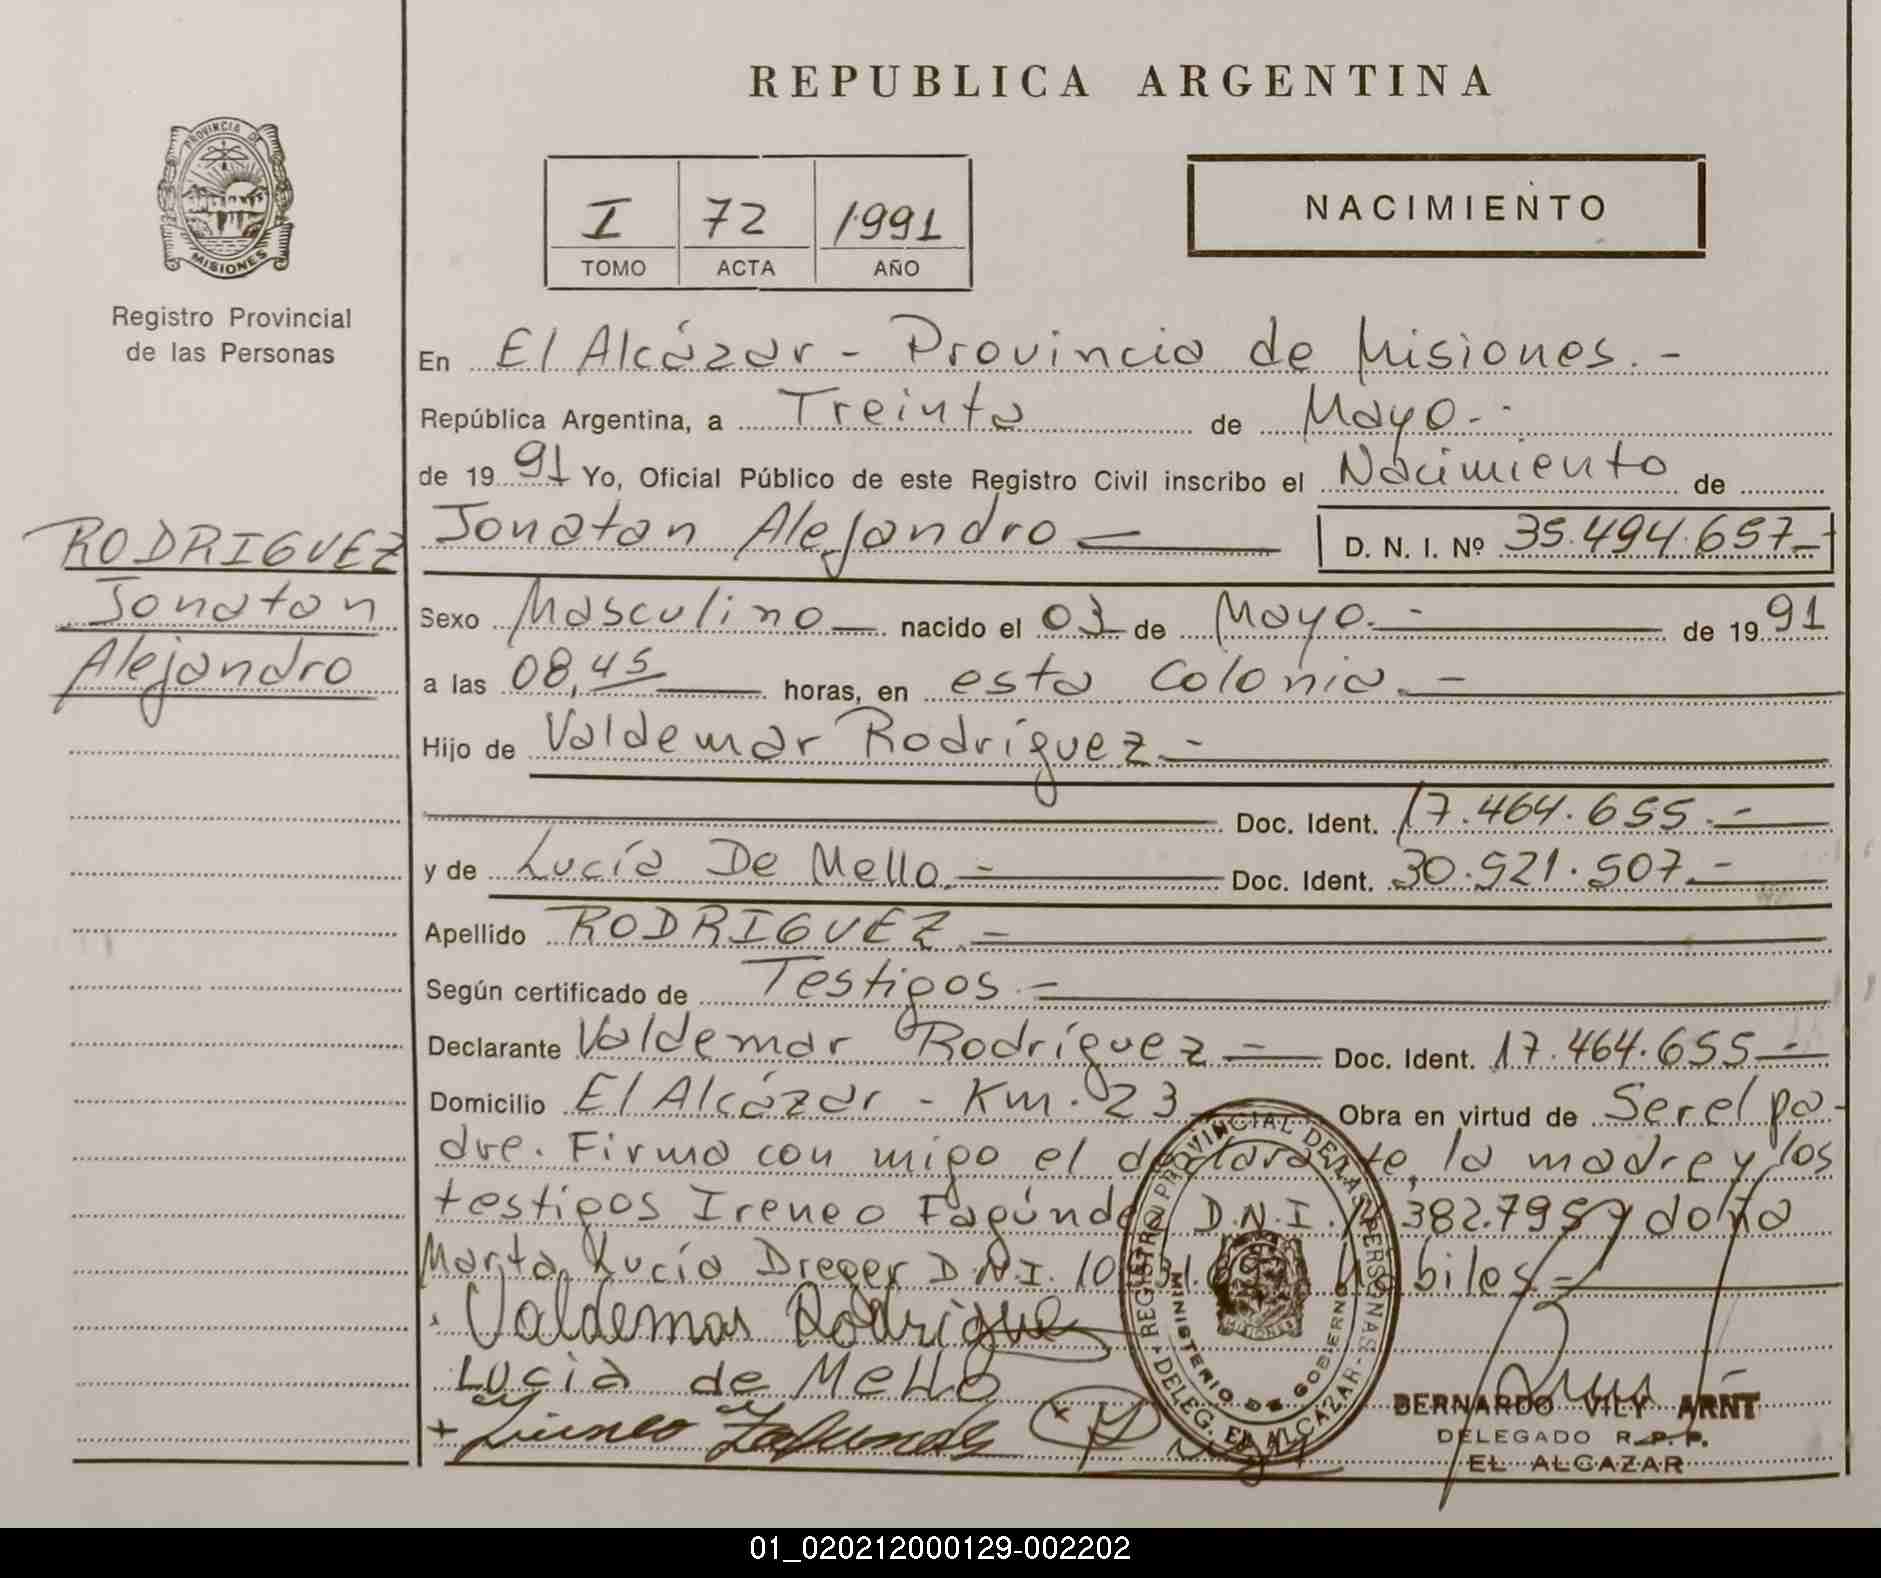 REPUBLICA ARGENTINA
PROVINCIA DE
MISIONES
Registro Provincial
de las Personas
I 72 1991
TOMO ACTA AÑO
NACIMIENTO
En El Alcázar - Provincia de Misiones.-
República Argentina, a Treinta de Mayo.-
de 1991 Yo, Oficial Público de este Registro Civil inscribo el Nacimiento de
RODRIGUEZ
Jonatan
Alejandro
Jonatan Alejandro D. N. I. Nº 35.494.657-
Sexo Masculino nacido el 03 de Mayo.- de 1991
a las 08,45 horas, en esta Colonia.-
Hijo de Valdemar Rodríguez.-
Doc. Ident. 17.464.655.-
y de Lucía De Mello.- Doc. Ident. 30.921.507.-
Apellido RODRIGUEZ.-
Según certificado de Testigos.-
Declarante Valdemar Rodríguez.- Doc. Ident. 17.464.655.-
Domicilio El Alcázar - Km. 23 Obra en virtud de Ser el pa-
dre. Firma con migo el declarante, la madre y los
testigos Ireneo Fagúndez D.N.I. y doña
Marta Lucía Dreger D.N.I. hábiles.-
Valdemar Rodrigue
Lucia de Mello
REGISTRO PROVINCIAL DE LAS PERSONAS
MINISTERIO DE GOBIERNO
DELEG. EL ALCAZAR
MISIONES
BERNARDO VILY ARNT
DELEGADO R. P. P.
EL ALCAZAR
01_020212000129-002202